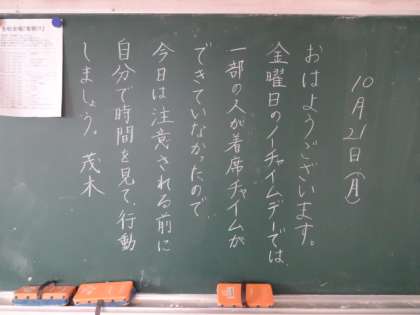 10月21日(月)
おはようございます。
金曜日のノーチャイムデーでは、
一部の人が着席チャイムが
できていなかったので、
今日は注意される前に
自分で時間を見て、行動
しましょう。茂木